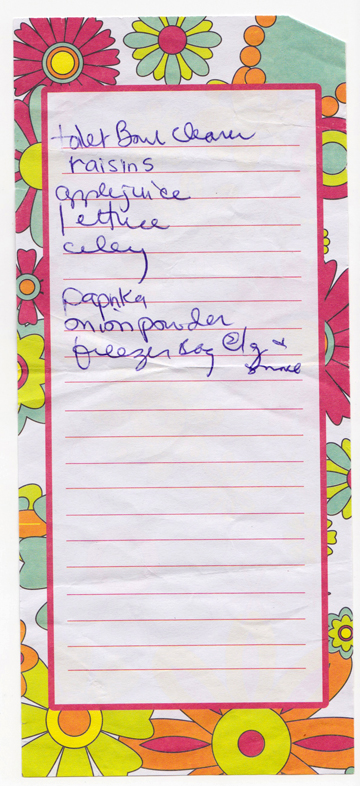 toilet Bowl cleaner
raisins
applejuice
lettuce
celery
paprika
onion powder
freezer Bag ② lg +
small